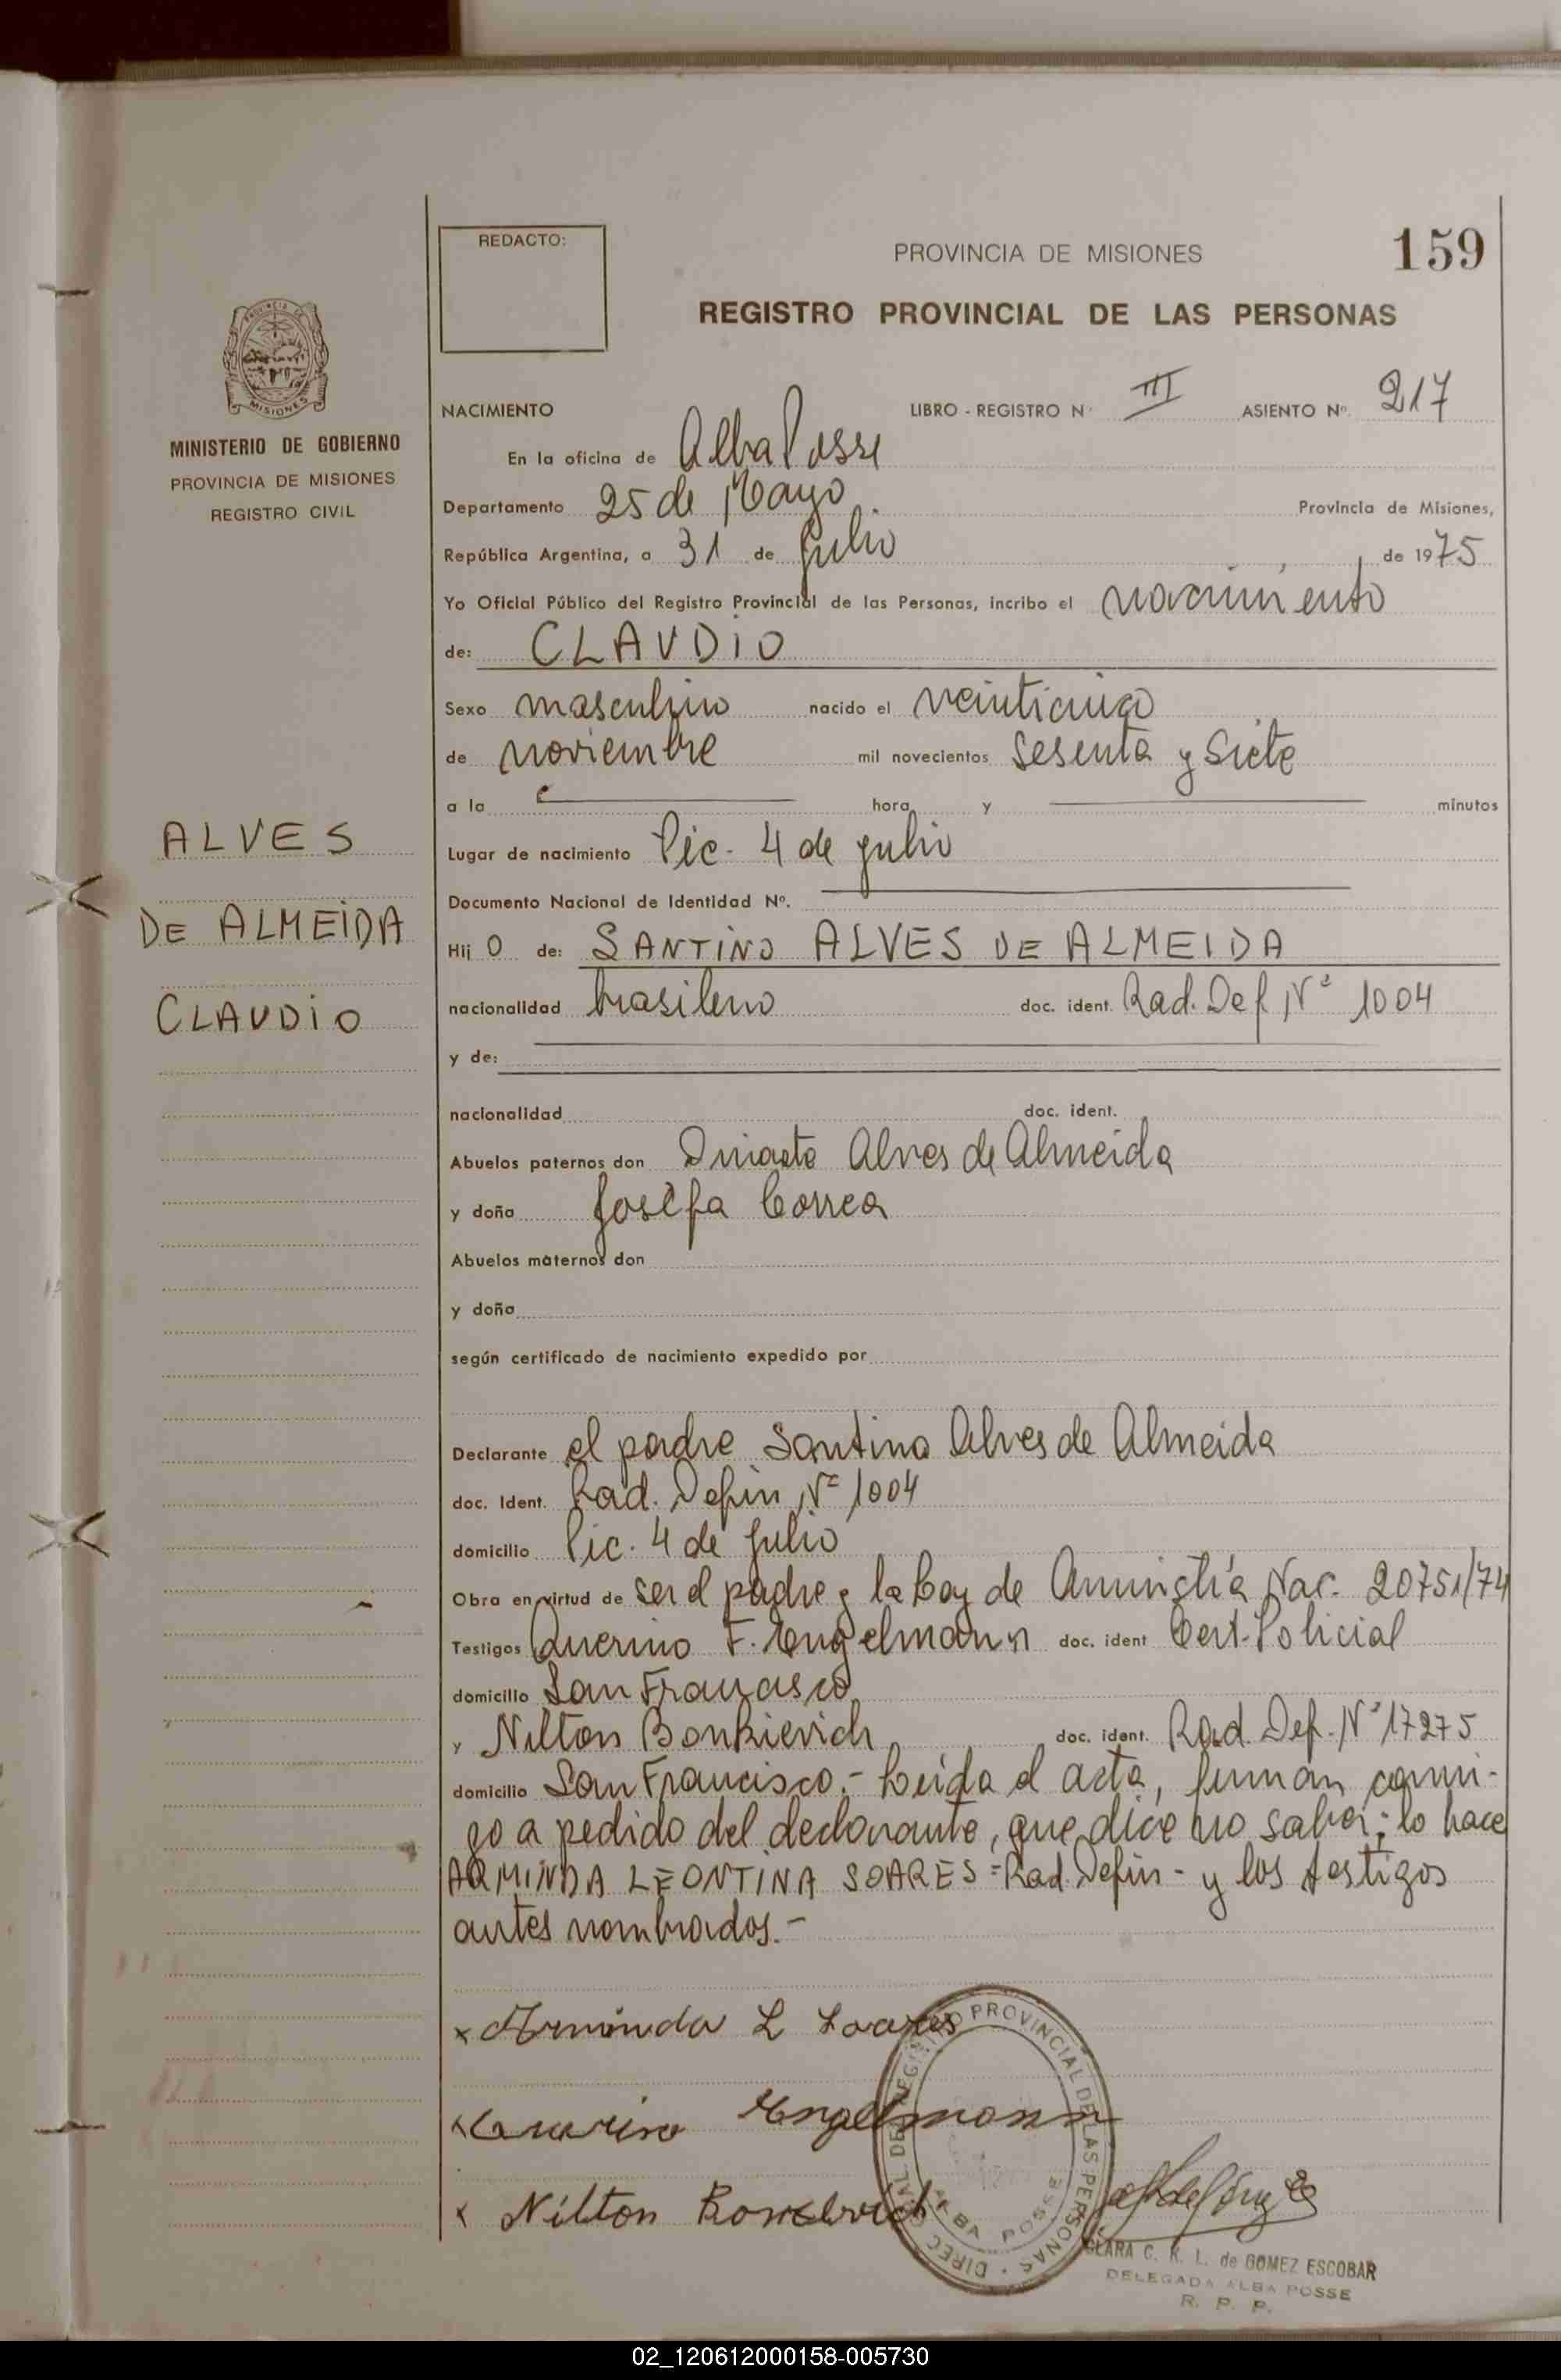 REDACTO:
PROVINCIA DE MISIONES
159
REGISTRO PROVINCIAL DE LAS PERSONAS
MINISTERIO DE GOBIERNO
PROVINCIA DE MISIONES
REGISTRO CIVIL
ALVES
DE ALMEIDA
CLAUDIO
NACIMIENTO LIBRO - REGISTRO Nº III ASIENTO Nº. 217
En la oficina de Alba Posse
Departamento 25 de Mayo Provincia de Misiones,
República Argentina, a 31 de julio de 1975
Yo Oficial Público del Registro Provincial de las Personas, incribo el nacimiento
de: CLAUDIO
Sexo masculino nacido el veinticinco
de noviembre mil novecientos sesenta y siete
a la hora y minutos
Lugar de nacimiento Pic. 4 de julio
Documento Nacional de Identidad Nº.
Hij O de: SANTINO ALVES DE ALMEIDA
nacionalidad brasileno doc. ident. Rad. Def. Nº 1004
y de:
nacionalidad doc. ident.
Abuelos paternos don Alves de Almeida
y doña Josefa Correa
Abuelos maternos don
y doña
según certificado de nacimiento expedido por
Declarante el padre Santino Alves de Almeida
doc. Ident. Rad. Defin Nº 1004
domicilio Pic. 4 de julio
Obra en virtud de ser el padre y la Ley de Amnistía Nac. 20751/74
Testigos Querino F. Engelmann doc. ident Cert. Policial
domicilio San Francisco
y Nilton Bonkievich doc. ident. Rad. Def. Nº 17275
domicilio San Francisco.- Leída el acta, firman conmi-
go a pedido del declarante, que dice no saber; lo hace
ARMINDA LEONTINA SOARES = Rad. Defin - y los testigos
antes nombrados.-
x Arminda L Soares
x Querino Engelmann
x Nilton
DIREC. GRAL. DEL REGISTRO PROVINCIAL DE LAS PERSONAS
ALBA POSSE
CLARA C. K. L. de GOMEZ ESCOBAR
DELEGADA ALBA POSSE
R. P. P.
02_120612000158-005730